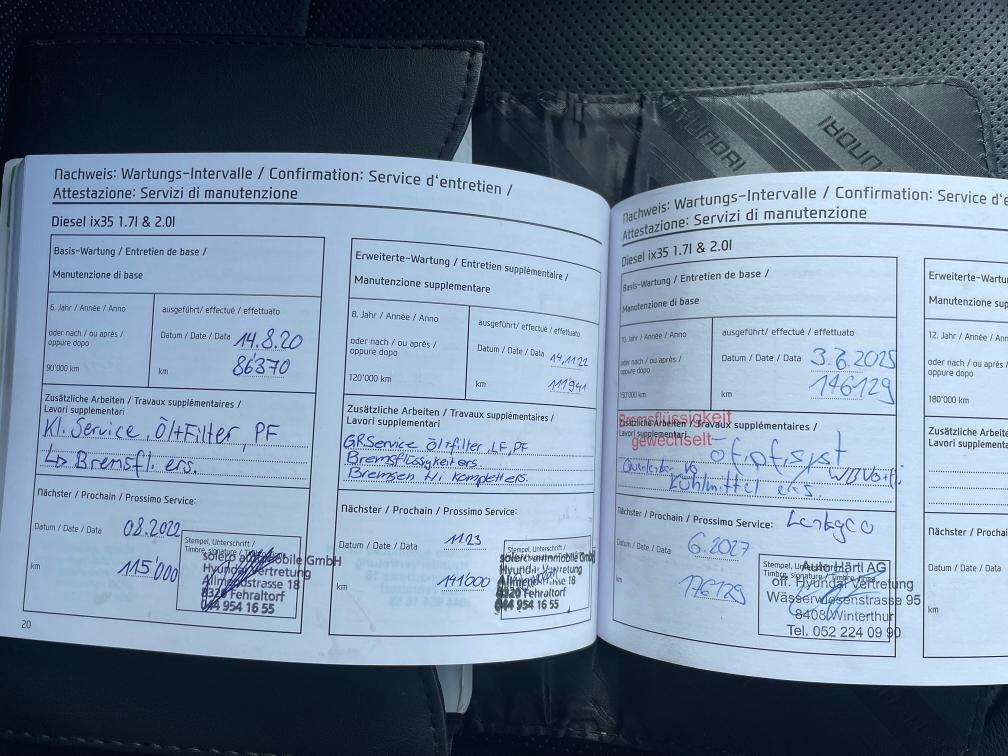 HYUNDAI
Nachweis: Wartungs-Intervalle / Confirmation: Service d'entretien /
Attestazione: Servizi di manutenzione
Diesel ix35 1.7l & 2.0l
Basis-Wartung / Entretien de base /
Manutenzione di base
6. Jahr / Année / Anno
oder nach / ou après /
oppure dopo
90'000 km
ausgeführt/ effectué / effettuato
Datum / Date / Data 14.8.20
km 86370
Zusätzliche Arbeiten / Travaux supplémentaires /
Lavori supplementari
Kl. Service, Öl+Filter, PF
↳ Bremsfl. ers.
Nächster / Prochain / Prossimo Service:
Datum / Date / Data 08.2022
km 115'000
Stempel, Unterschrift /
Timbre, signature /
solero automobile GmbH
Hyundai Vertretung
Allmendstrasse 18
8320 Fehraltorf
044 954 16 55
20
Erweiterte-Wartung / Entretien supplémentaire /
Manutenzione supplementare
8. Jahr / Année / Anno
oder nach / ou après /
oppure dopo
120'000 km
ausgeführt/ effectué / effettuato
Datum / Date / Data
km 111941
Zusätzliche Arbeiten / Travaux supplémentaires /
Lavori supplementari
GRService Öl+filter, LF, PF
Bremsflüssigkeit ers.
Bremsen Hi komplett ers.
Nächster / Prochain / Prossimo Service:
Datum / Date / Data 11.23
km 141000
Stempel, Unterschrift /
solero automobile GmbH
Hyundai Vertretung
18
8320 Fehraltorf
044 954 16 55
Nachweis: Wartungs-Intervalle / Confirmation: Service d'e
Attestazione: Servizi di manutenzione
Diesel ix35 1.7l & 2.0l
Basis-Wartung / Entretien de base /
Manutenzione di base
10. Jahr / Année / Anno
oder nach / ou après /
oppure dopo
150'000 km
ausgeführt/ effectué / effettuato
Datum / Date / Data 3.6.2025
km 146129
Zusätzliche Arbeiten / Travaux supplémentaires /
Lavori supplementari
Bremsflüssigkeit
gewechselt
Kühlmittel ers.
Nächster / Prochain / Prossimo Service:
Datum / Date / Data 6.2027
km 176129
Stempel, Unterschrift /
Timbre, signature / Timbro, firma
Auto Härtl AG
off. Hyundai Vertretung
Wässerwiesenstrasse 95
8408 Winterthur
Tel. 052 224 09 90
Erweiterte-Wartu
Manutenzione sup
12. Jahr / Année / Ann
oder nach / ou après /
oppure dopo
180'000 km
Zusätzliche Arbeit
Lavori supplement
Nächster / Proch
Datum / Date / Data
km